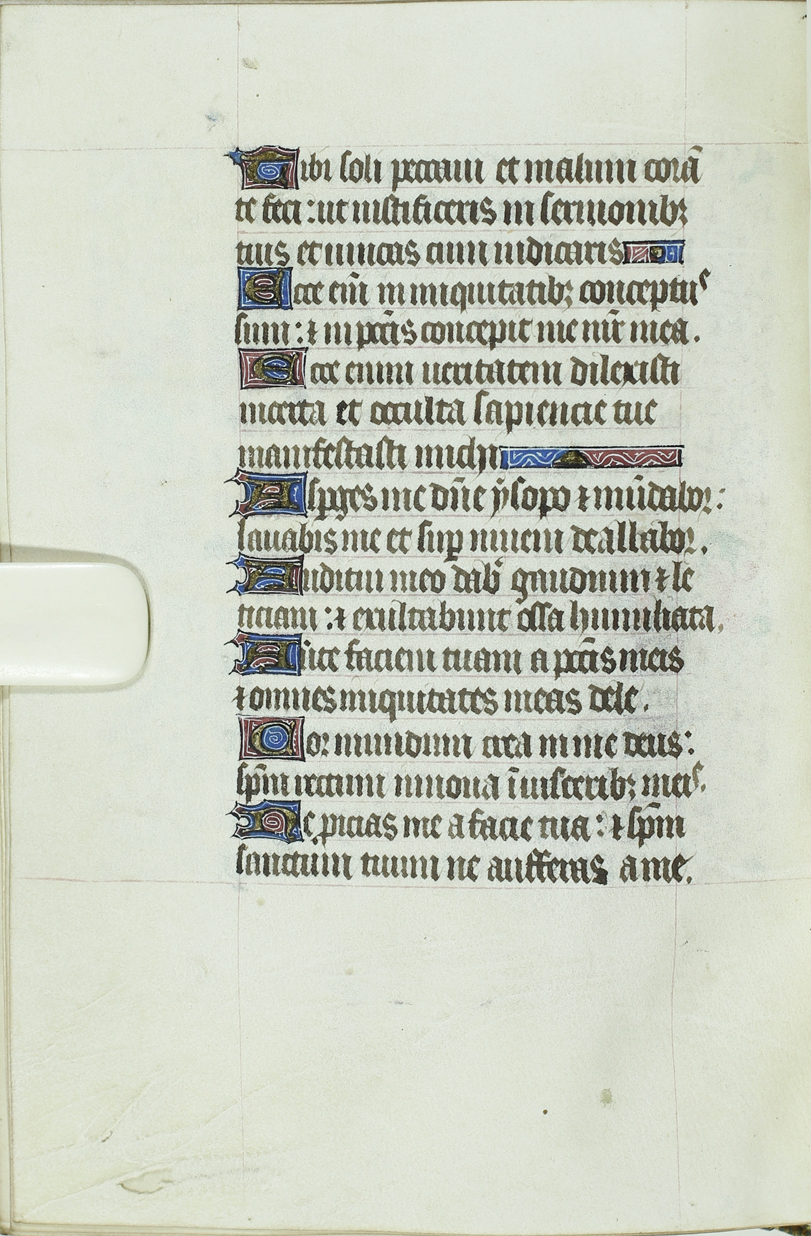 Tibi soli peccaui et malum corā
te feci : ut iustificeris in sermonibꝫ
tuis et uincas cum iudicaris
Ecce eni̅ in iniquitatibꝫ conceptuˢ
sum : ⁊ in pcc̅is concepit me mr̅ mea .
Ecce enim ueritatem dilexisti
incerta et occulta sapiencie tue
manifestasti michi
Asꝑges me dn̅e ẏsopo ⁊ mūdabor :
lauabis me et suꝑ niuem dealbabor .
Auditui meo dabˢ gaudium ⁊ le
ticiam : ⁊ exultabunt ossa humiliata .
Auͥte faciem tuam a pcc̅is meis
⁊ omnes iniquitates meas dele .
Cor mundum crea in me deus :
sp̅m rectum innoua ī uisceribꝫ meiˢ .
Ne ꝓicias me a facie tua : ⁊ sp̅m
sanctum tuum ne aufferas a me .